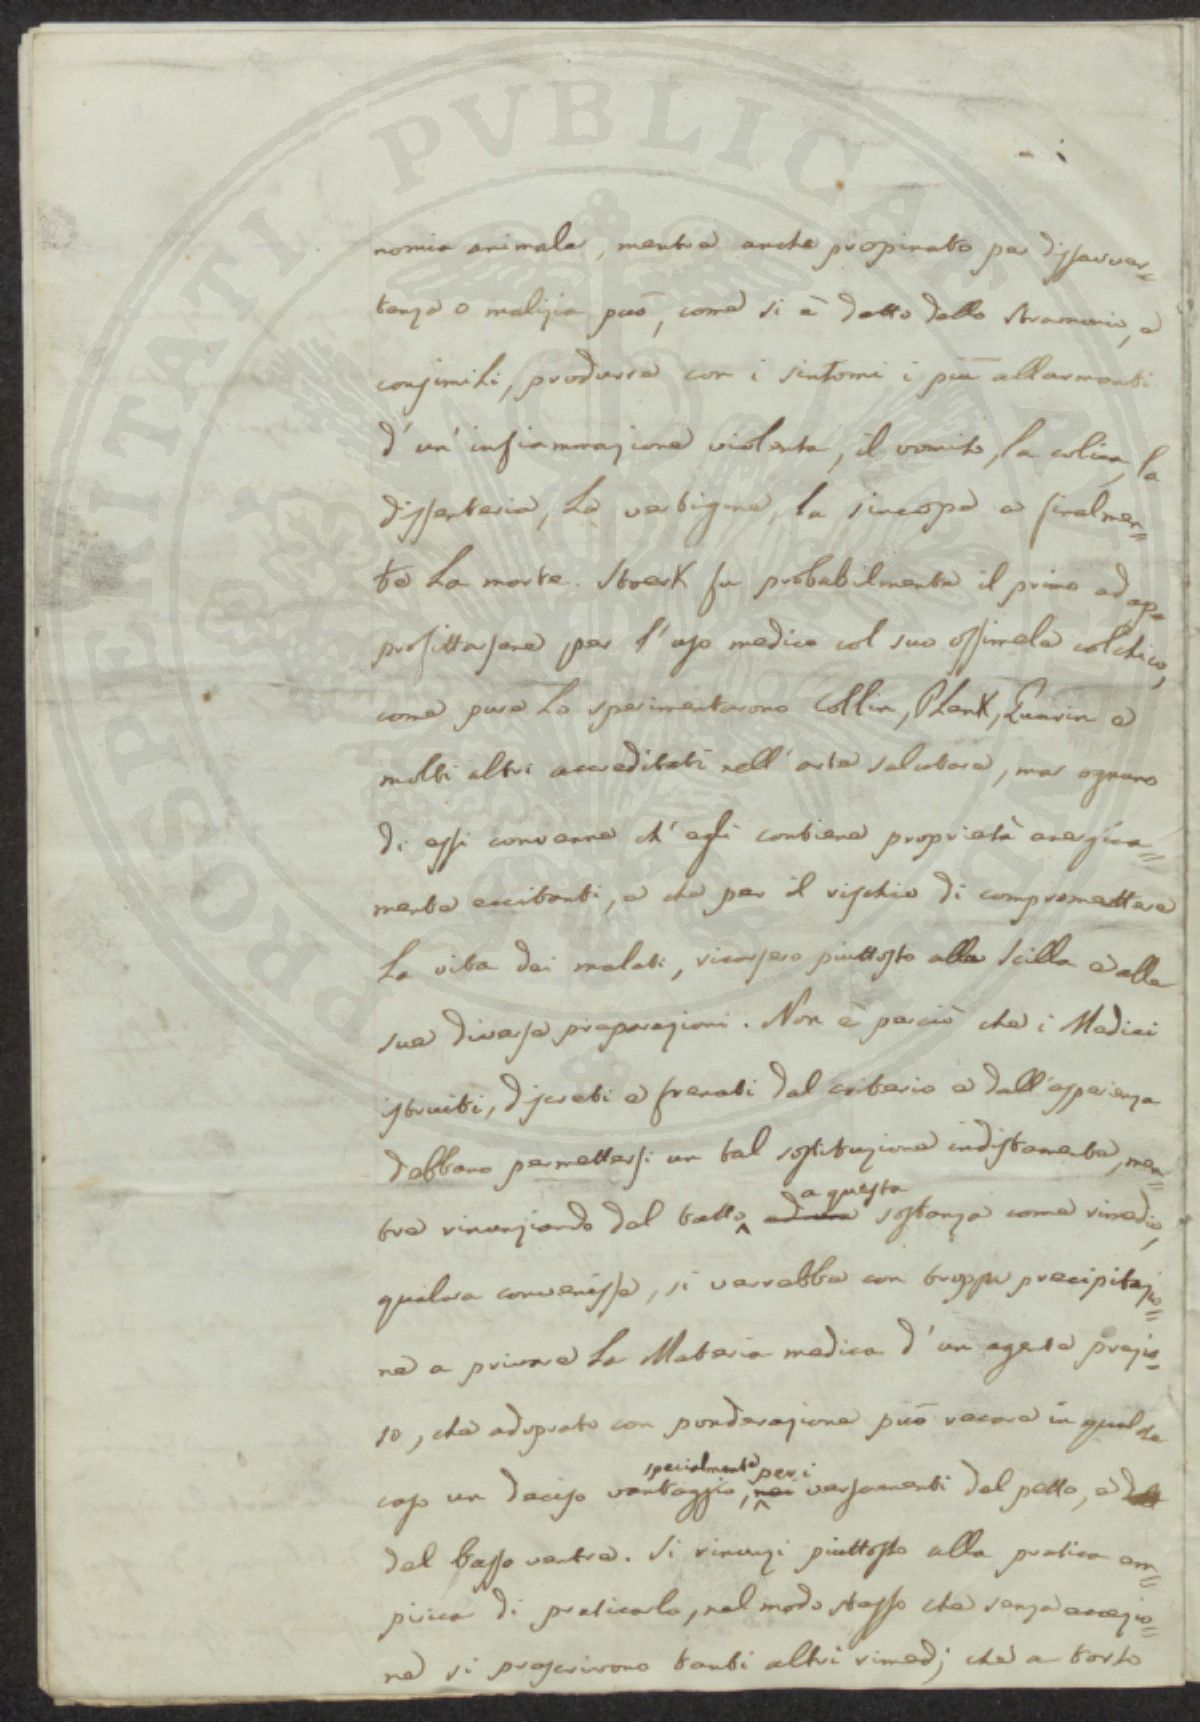 PROSPERITATI PUBLICAE AUGENDAE
nomia animale, mentre anche propinato per disavver=
tenza o malizia può, come si è detto dello stramonio, e
consimili, produrre con i sintomi i più allarmanti
d'un'infiammazione violenta, il vomito, la colica, la
dissenteria, la vertigine, la sincope e finalmen=
te la morte. Stoerk fu probabilmente il primo ad ap=
profittarsene per l'uso medico col suo ossimele colchico,
come pure lo sperimentarono Collin, Plenk, Quarin e
molti altri accreditati nell'arte salutare, ma ognuno
di essi convenne ch'egli contiene proprietà energica=
mente eccitanti, e che per il rischio di compromettere
la vita dei malati, ricorsero piuttosto alla Scilla e alle
sue diverse preparazioni. Non è perciò che i Medici
istruiti, discreti e frenati dal criterio e dall'esperienza
debbano permettersi un tal sostituzione indistamente, men=
tre rinunziando del tutto ad una a questa sostanza come rimedio,
qualora convenisse, si verrebbe con troppa precipitazio=
ne a privare la Materia medica d'un agente prezio=
so, che adoprato con ponderazione può recare in qualche
caso un deciso vantaggio, specialmente nei per i versamenti del petto, e
del basso ventre. Si rinunzi piuttosto alla pratica em=
pirica di praticarlo, nel modo stesso che senza eccezio=
ne si proscrivono tanti altri rimedj che a torto